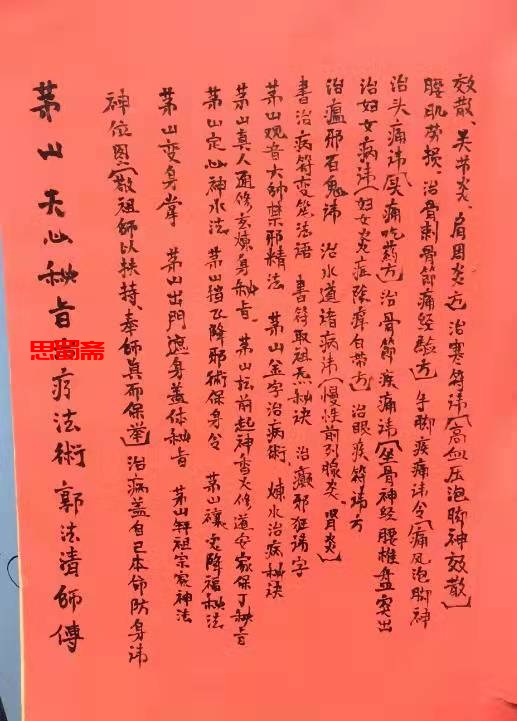 效散、关节炎、肩周炎方】治寒符讳【高血压泡脚神效散】
腰肌劳损、治骨刺骨节痛经验方】手脚疾痛讳令【痛风泡脚神
治头痛讳【头痛吃药方】治骨節疾痛讳【坐骨神经腰椎盘突出
治妇女病讳【妇女炎症除瘴白带方】治眼疾符讳方
治瘟邪百鬼讳 治水道诸病讳【慢性前列腺炎、肾炎】
書治病符变笔法語 書符取祖炁秘诀 治癫邪狂讳字
茅山观音大帅禁邪精法 茅山金字治病術、煉水治病秘诀
茅山真人通修玄煉身秘旨、茅山坛前起神蛮天修道安家保丁秘旨
茅山定心神水法 茅山挡飞降邪術保身令 茅山禳定降福秘法
茅山变身掌 茅山出門遮身盖体秘旨 茅山解祖宗家神法
神位图【敬祖師以扶持、奉師真而保举】治病盖自己本命防身讳
茅山天心秘旨 疗法術郭法清師傅
思蜀斋